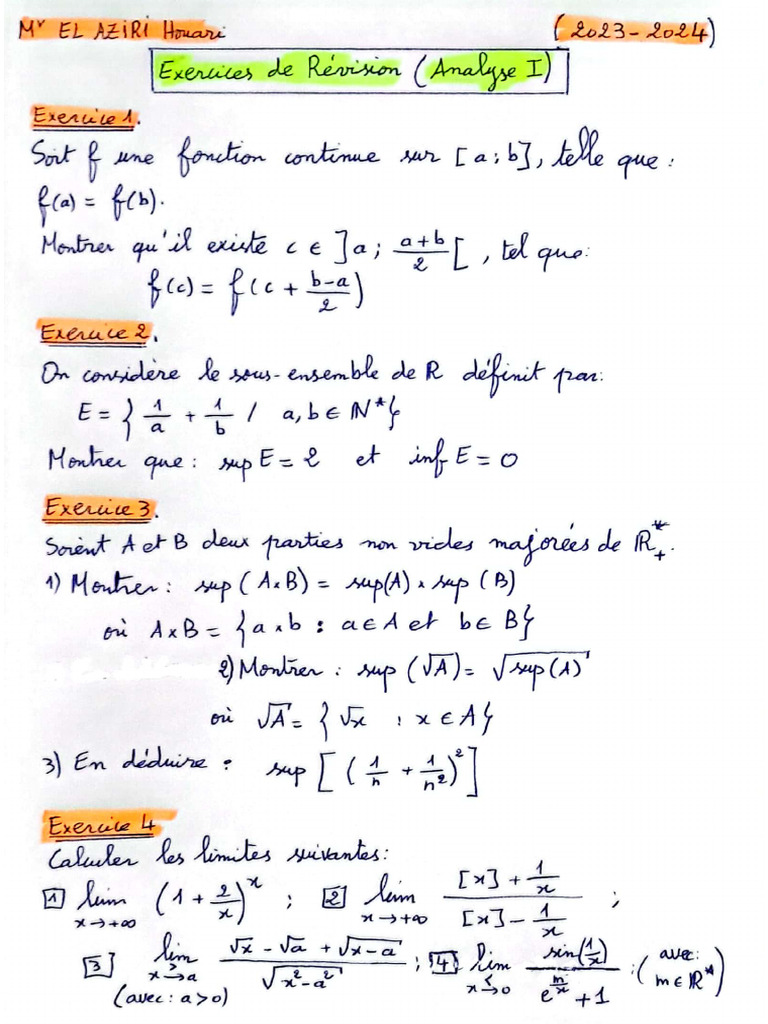 Mr EL AZIRI Houari (2023-2024)
Exercices de Révision (Analyse I)
Exercice 1.
Soit f une fonction continue sur [a; b], telle que:
f(a) = f(b).
Montrer qu'il existe c ∈ ]a; (a+b)/2[, tel que:
f(c) = f(c + (b-a)/2)
Exercice 2.
On considère le sous-ensemble de R définit par:
E = { 1/a + 1/b / a, b ∈ N* }
Montrer que: sup E = 2 et inf E = 0
Exercice 3.
Soient A et B deux parties non vides majorées de R*+.
1) Montrer: sup (A×B) = sup(A) × sup (B)
où A×B = {a×b : a∈A et b∈B}
2) Montrer: sup (√A) = √sup(A)
où √A = { √x : x ∈ A }
3) En déduire: sup [ (1/n + 1/n²)² ]
Exercice 4
Calculer les limites suivantes:
1 lim x→+∞ (1 + 2/x)^x ; 2 lim x→+∞ ([x] + 1/x)/([x] - 1/x) ;
3 lim x→>a (√x - √a + √(x-a))/√(x²-a²) ; 4 lim x→<0 sin(1/x)/(e^(m/x) + 1) : (avec: m∈R*)
(avec: a>0)